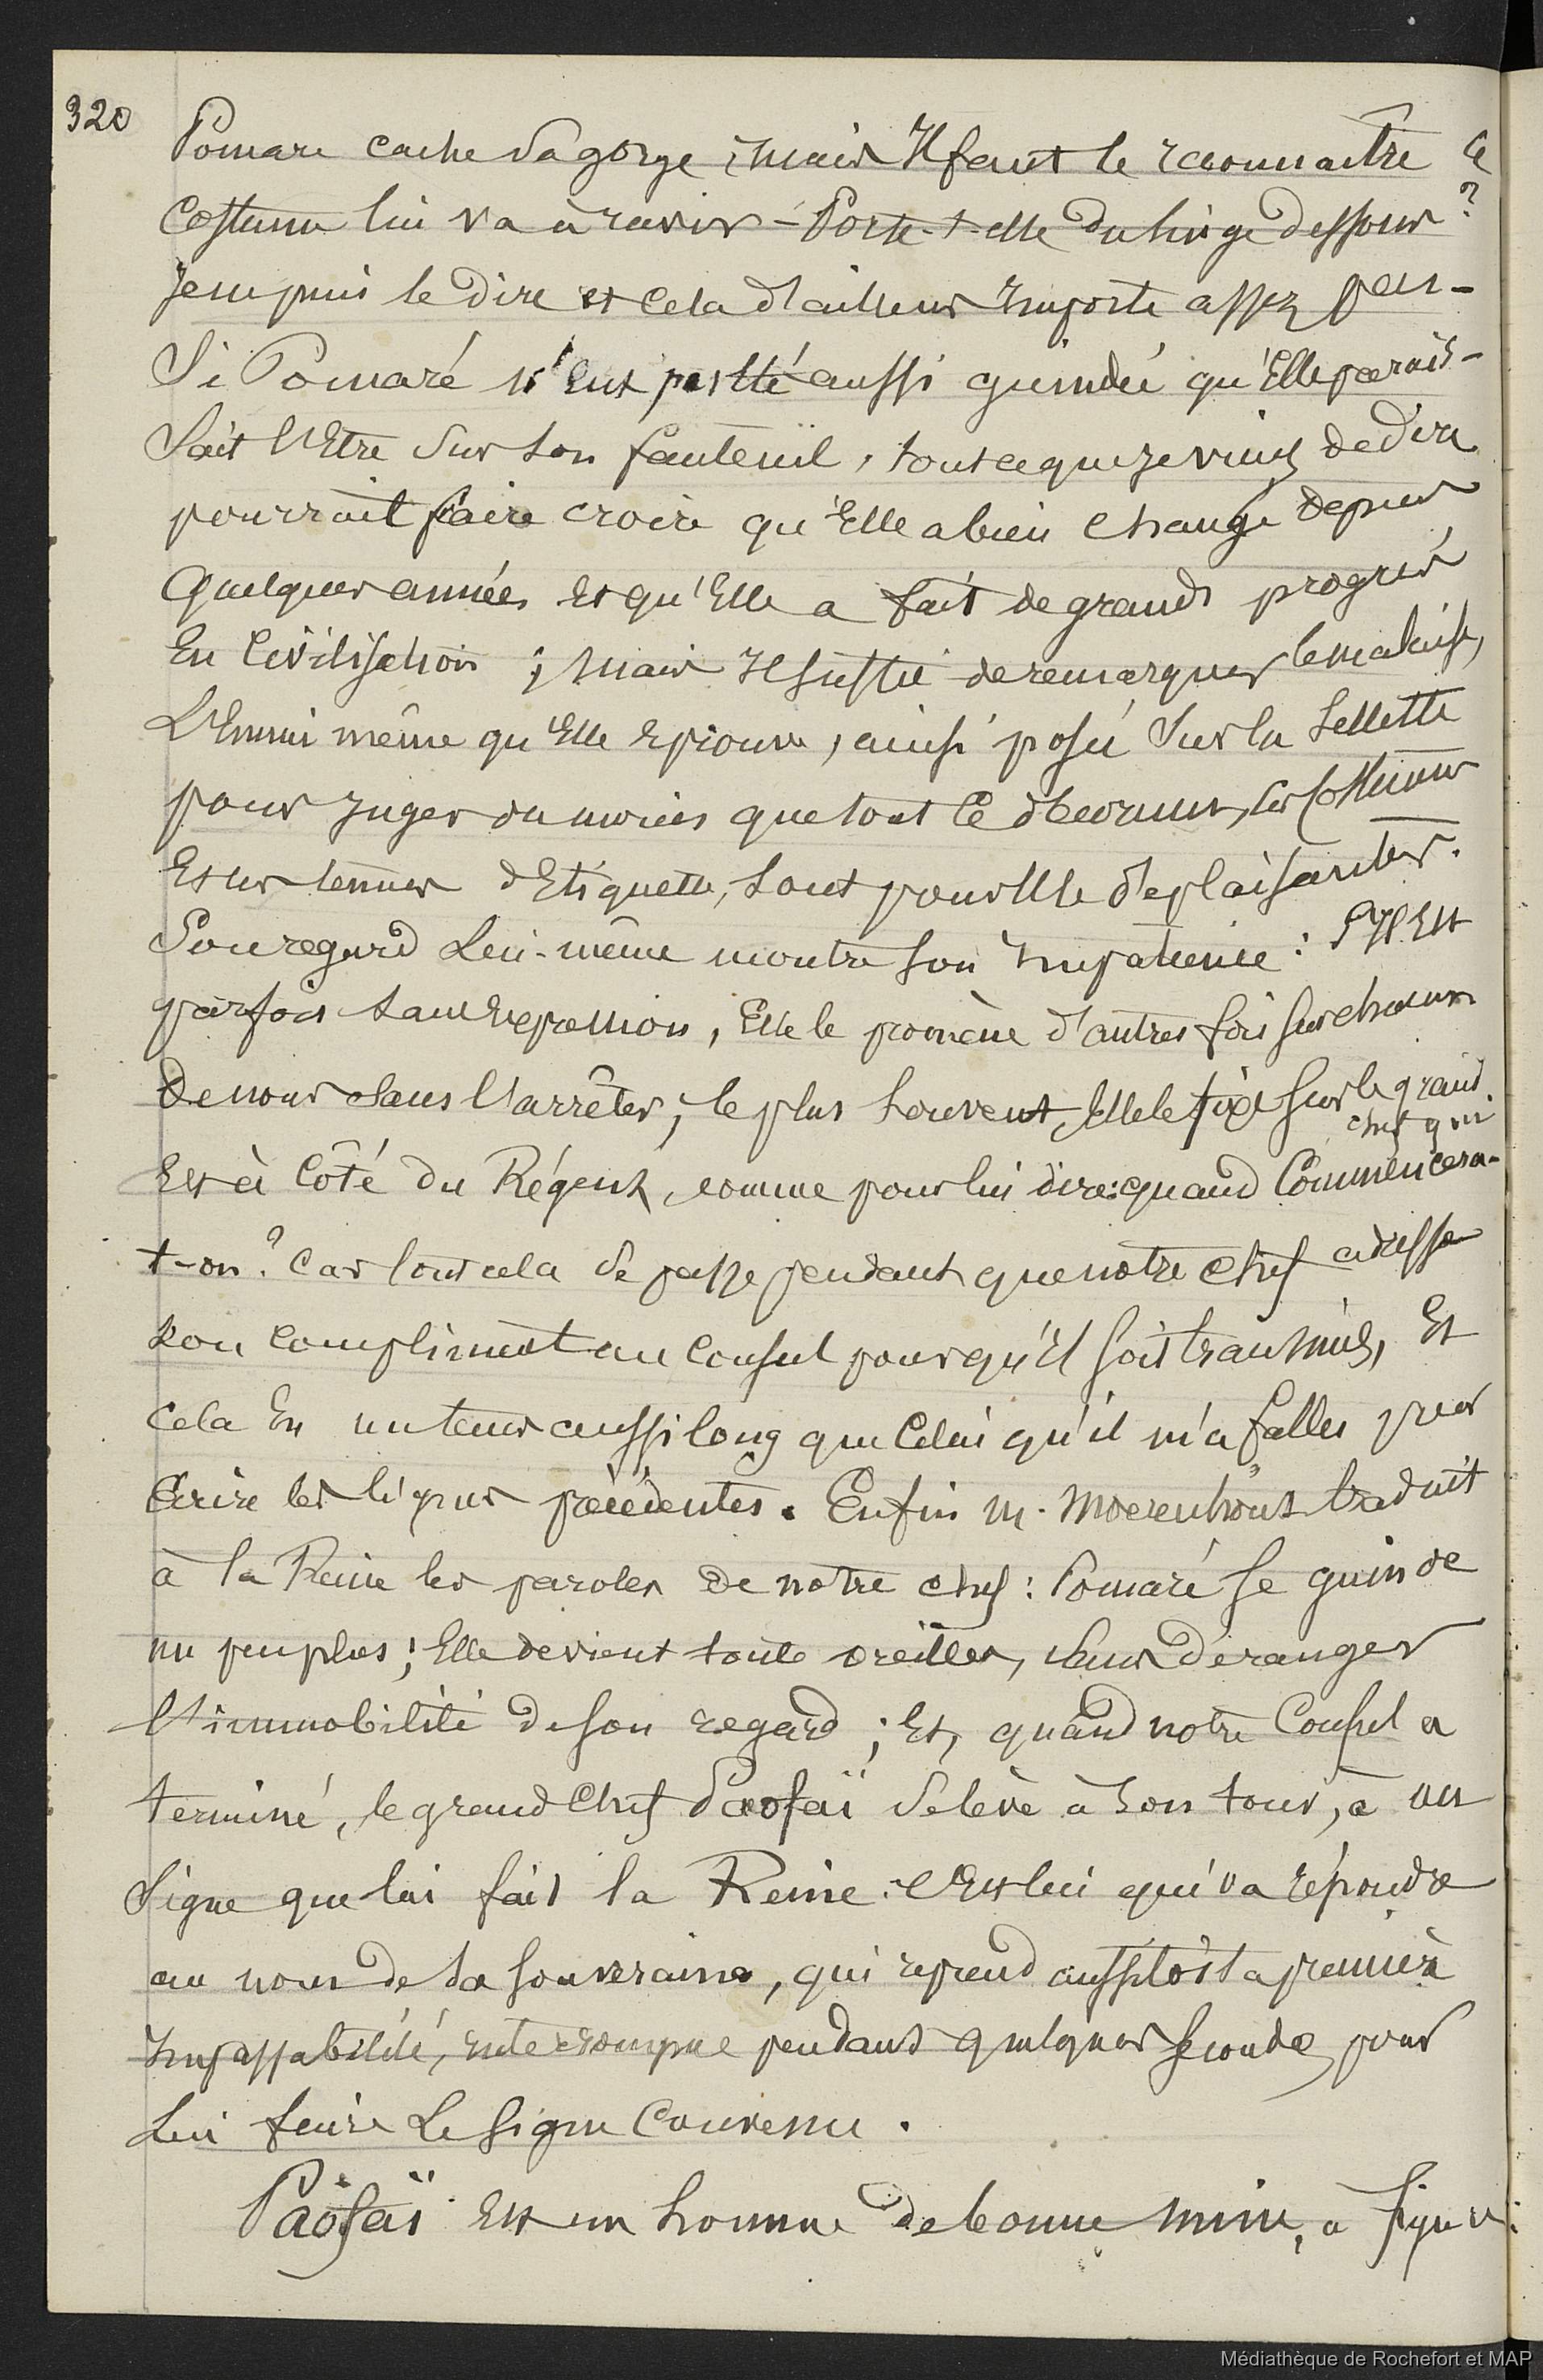 320
Pomare cache sa gorge ; mais Il faut le reconnaître Ce
Costume lui va à ravir – Porte-t-elle du linge dessous ?
Je ne puis le dire et Cela d'ailleurs Importe assez peu –
Si Pomaré n'Eut pas été aussi guindée qu'Elle parais-
sait l'Etre Sur son fauteuil, tout ce que je viens de dire
pourrait faire croire qu'Elle a bien Changé depuis
Quelques années Et qu'Elle a fait de grands progrès
En Civilisation ; Mais Il suffit de remarquer le malaise,
L'Ennui même qu'Elle Eprouve, ainsi posée Sur la Sellette
pour Juger du moins que tout Ce décorum, ces Costumes
Et ces tenues d'Etiquette, Sont pour Elle déplaisantes.
Son regard Lui-même montre son Impatience : S'Il Est
parfois sans Expression, Elle le promène d'autres fois sur chacun
de nous Sans l'arrêter ; le plus souvent, Elle le fixe sur le grand
chef qui
Est à Côté du Régent, comme pour lui dire : quand Commencera-
t-on ? Car tout cela Se passe pendant que notre Chef adresse
son Compliment au Consul pour qu'il soit transmis, Et
Cela En un tems aussi long que Celui qu'il m'a fallu pour
Ecrire les lignes précédentes. Enfin M. Moerenhout traduit
à la Reine les paroles de notre chef : Pomaré se guinde
un peu plus ; Elle devient toute oreilles, sans déranger
l'immobilité de son regard ; Et, quand notre Consul a
terminé, le grand Chef Paofaï Se lève à son tour, à un
Signe que lui fait la Reine : C'Est lui qui va répondre
au nom de sa souveraine, qui reprend aussitôt sa première
Impassabilité, interrompue pendant quelques secondes pour
Lui faire Le signe Convenu.
Paöfaï Est un homme de bonne mine, à figure
Médiathèque de Rochefort et MAP